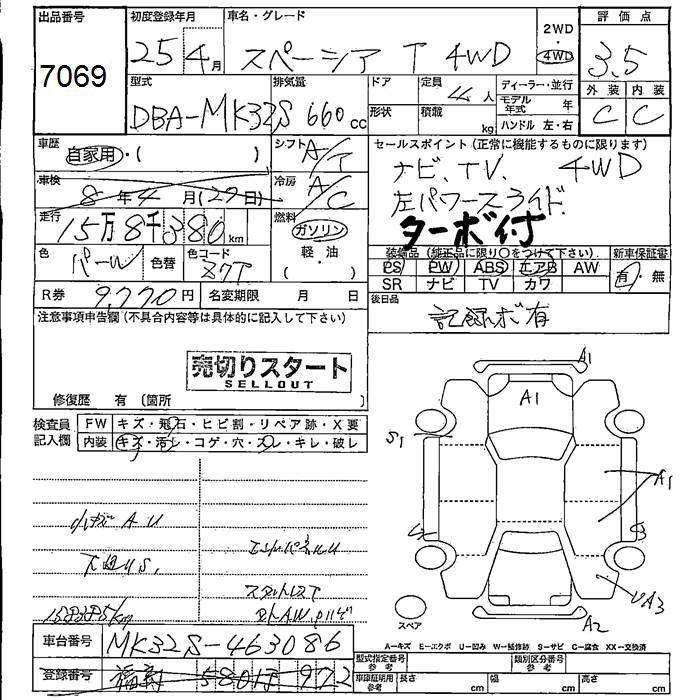 出品番号 初度登録年月 車名・グレード 2WD ・ 4WD 評価点
7069 25 4月 スペーシア T 4WD 3.5
型式 排気量 ドア 定員 人 ディーラー・並行 外装 内装
DBA-MK32S 660cc 形状 積載 kg モデル年式 年 C C
ハンドル 左・右
車歴 自家用・( ) シフト A/T セールスポイント (正常に機能するものに限ります)
ナビ、TV、 4WD
車検 8年4月(29日) 冷房 A/C 左パワースライド
走行 15万8千380km 燃料 ガソリン ターボ付
色 パール 色替 色コード Z7T 軽・油 ( ・ )
装備品 (純正品に限り○をつけて下さい) 新車保証書
PS PW ABS エアB AW 有・無
SR ナビ TV カワ
R券 9,770円 名変期限 月 日 後日品
記録ボ有
注意事項申告欄 (不具合内容等は具体的に記入して下さい)
売切りスタート
SELLOUT
修復歴 有 (箇所 )
検査員記入欄 FW キズ・飛石・ヒビ割・リペア跡・X要
内装 キズ・汚レ・コゲ・穴・スレ・キレ・破レ
A1
A1
S1
A1
A3
A2
小キズ A U
下回りS.
エンパネルU
スタットレスT
158385km
スペア
車台番号 MK32S-463086
A-キズ E-エクボ U-凹み W-補修跡 S-サビ C-腐食 XX-交換済
登録番号 580 972
型式指定番号 参考 類別区分番号 参考
車庫証明用 参考 長さ cm 幅 cm 高さ cm